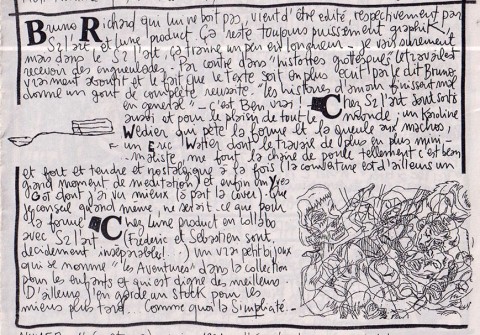 Bruno Richard qui lui ne boit pas, vient d'être édité, respectivement par
S2 l'art et Lune Product. Ça reste toujours puissement graphik,
mais dans le S2 l'art, ça traîne un peu en longueur - Je vais surement
recevoir des engueulades. Par contre dans "histoires grotesques" le travail est
vraiment abouti et le fait que le texte soit en plus écrit par le dit Bruno,
donne un goût de complète réussite. "les histoires d'amour finissent mal
en général" - C'est Ben vrai! Chez S2 l'art sont sortis
aussi et pour le plaisir de tout le monde; un Karoline
Wedier qui pète la forme et la gueule aux machos,
un Eric Watier dont le travail de plus en plus mini-
maliste, me fout la chaîne de poule tellement c'est bein
et fort et tendre et nostalgique à la fois (la couverture est d'ailleurs un
grand moment de méditation) et enfin un Yves
Got dont j'ai vu mieux (à part la cover) que
je conseil quand même, ne serait-ce que pour
la forme. Chez Lune product en collabo
avec S2 l'art (Fréderic et Sebastien sont
décidement inséparables!...) un vrai petit bijoux
qui se nomme "les Aventures" dans la collection
pour les enfants et qui est digne des meilleurs
D'ailleurs j'en garde un stock pour les
miens plus tard.. Comme quoi la Simplicité.-